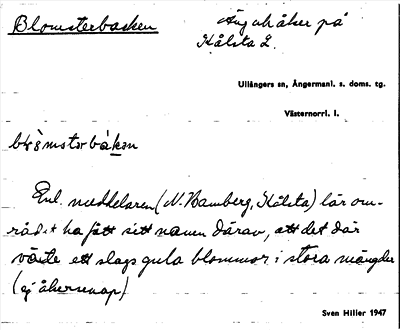 Blomsterbacken
Äng och åker på
Kålsta 2.
Ullångers sn, Ångermanl. s. doms. tg.
Västernorrl. l.
Enl. meddelaren (N. Bamberg, Kålsta) lär om-
rådet ha fått sitt namn därav, att det där
växte ett slags gula blommor i stora mängder
(ej åkersenap)
Sven Hiller 1947